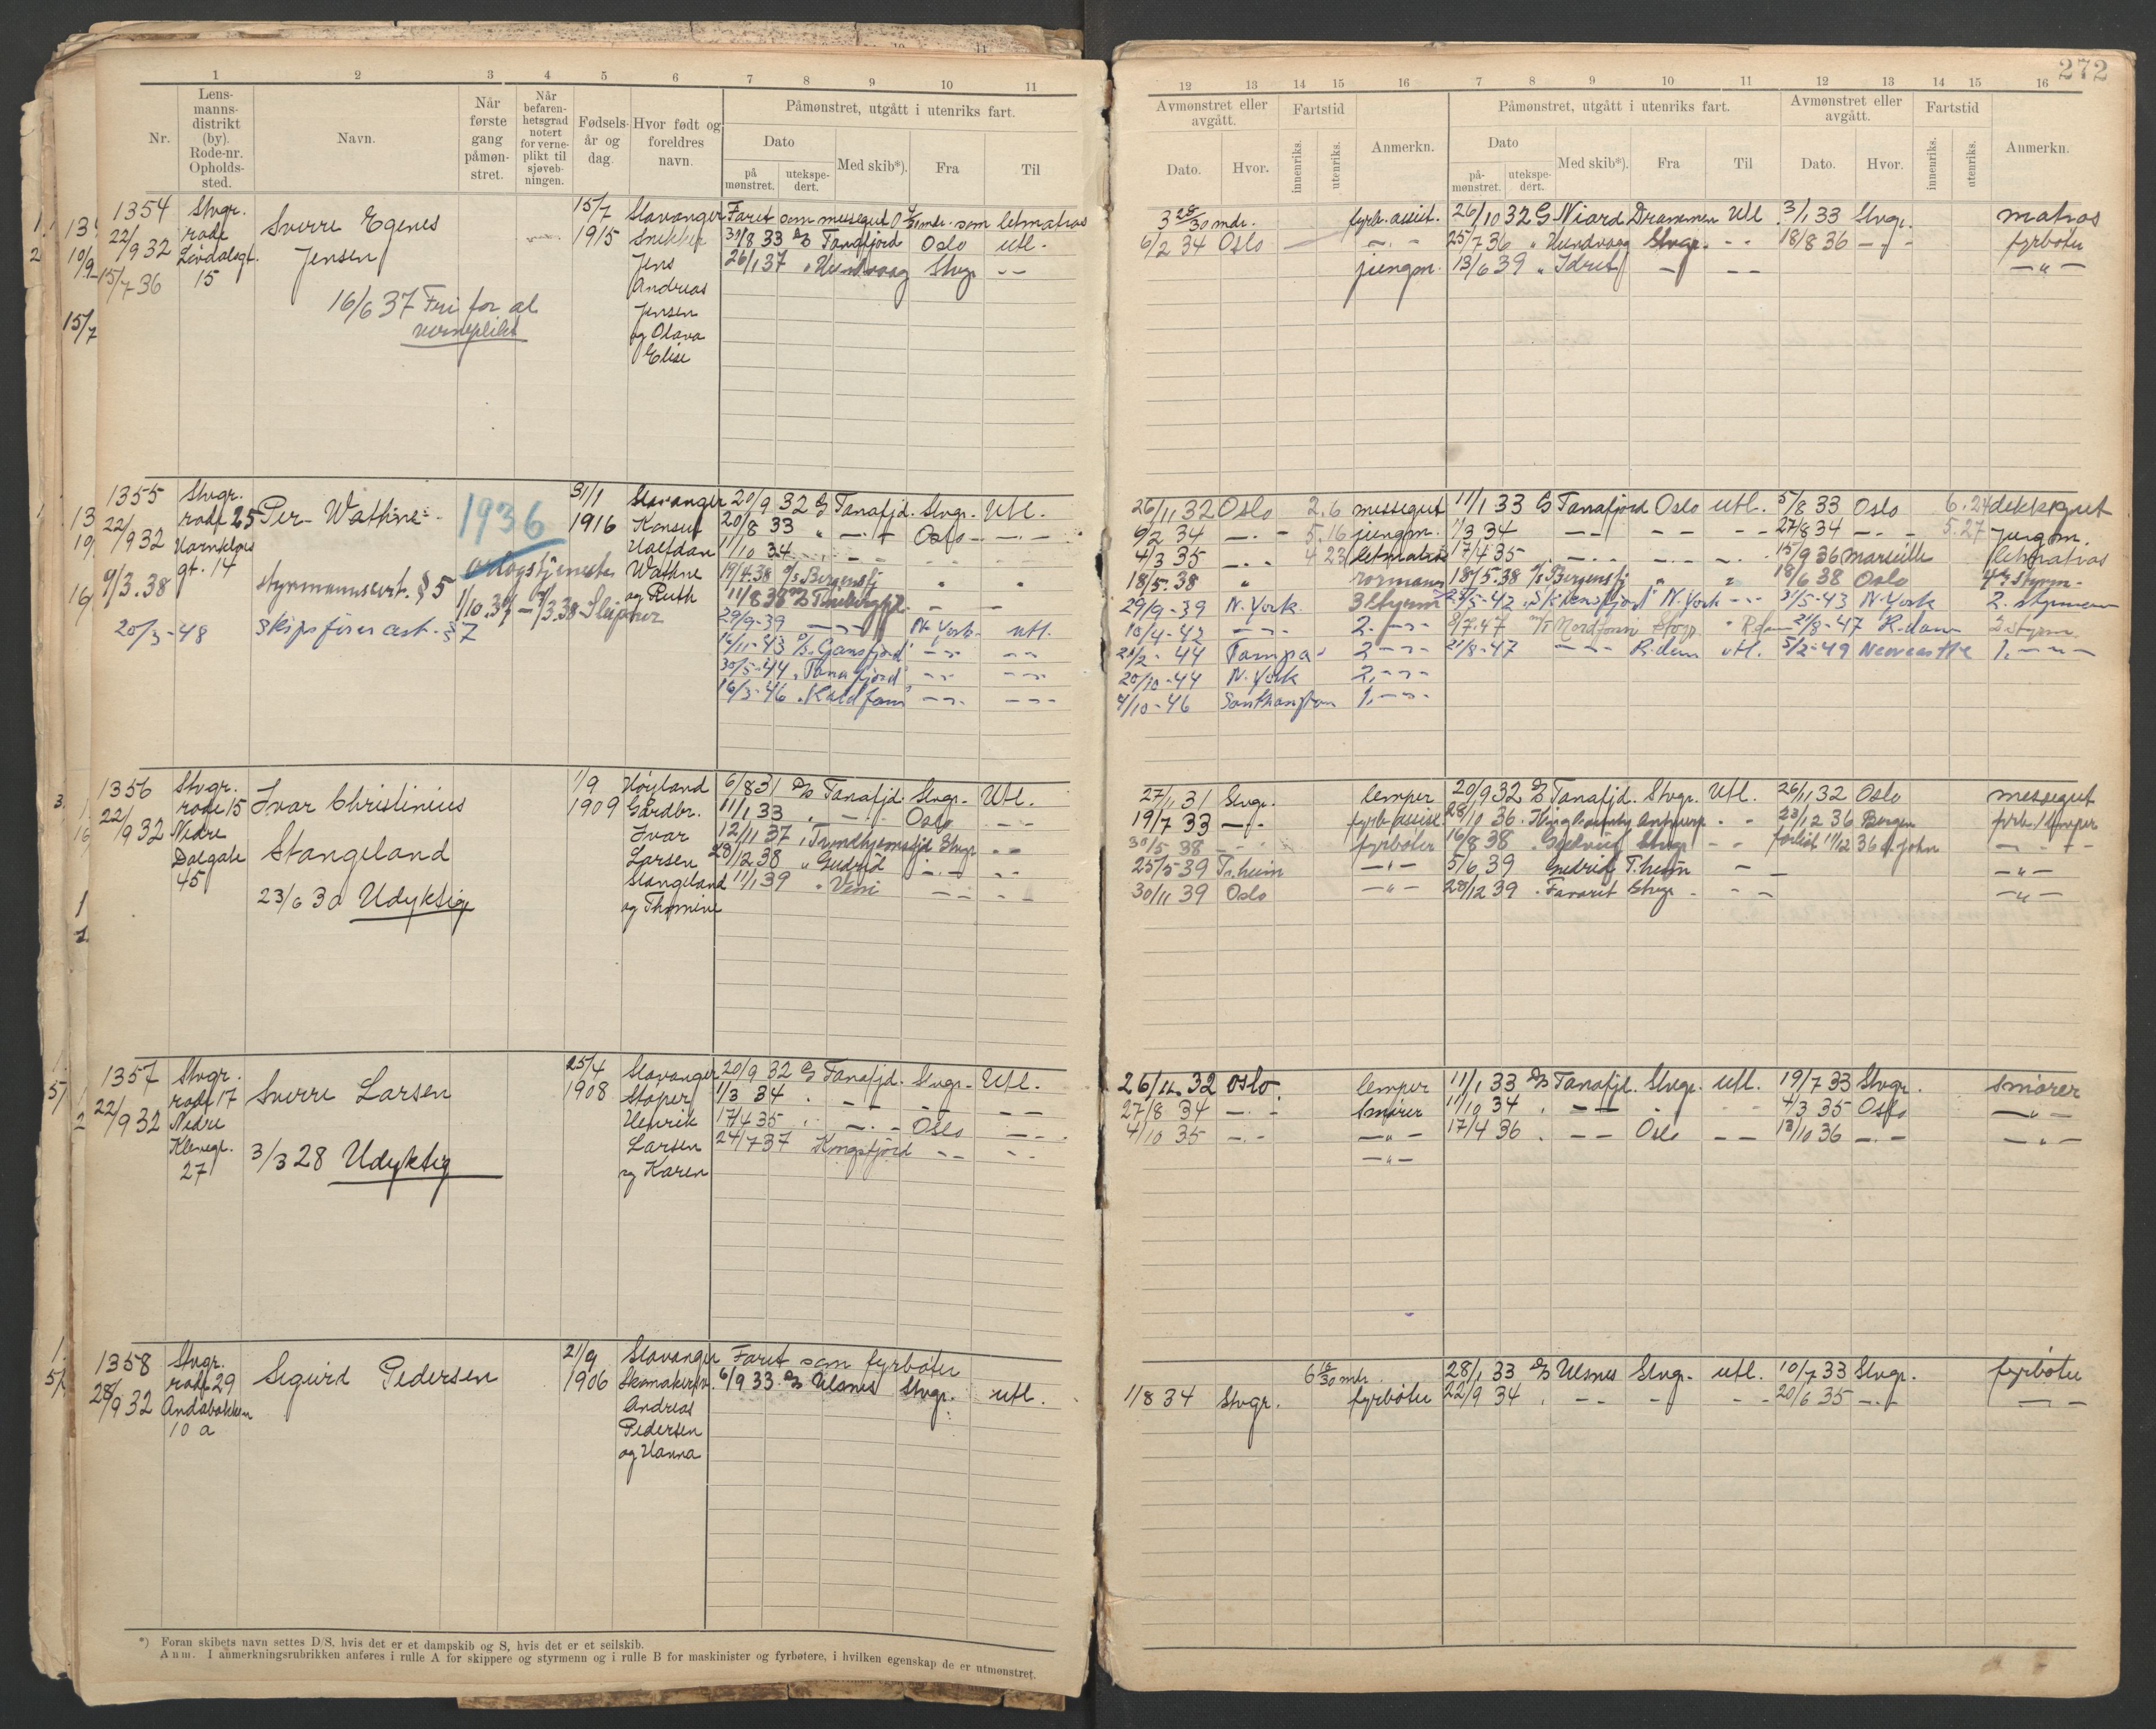 272
1 2 3 4 5 6 7 8 9 10 11
Nr.
Lens-
manns-
distrikt
(by).
Rode-nr.
Opholds-
sted.
Navn.
Når
første
gang
påmøn-
stret.
Når
befaren-
hetsgrad
notert
for verne-
plikt til
sjøveb-
ningen.
Fødsels-
år og
dag.
Hvor født og
foreldres
navn.
Påmønstret, utgått i utenriks fart.
Dato
på
mønstret.
utekspe-
dert.
Med skib*).
Fra
Til
12 13 14 15 16 7 8 9 10 11 12 13 14 15 16
Avmønstret eller
avgått.
Dato.
Hvor.
Fartstid
innenriks.
utenriks.
Anmerkn.
Påmønstret, utgått i utenriks fart.
Dato
på-
mønstret.
utekspe-
dert.
Med skib*).
Fra
Til
Avmønstret eller
avgått.
Dato.
Hvor.
Fartstid
innenriks.
utenriks.
Anmerkn.
1354
22/9 32
15/7 36
Stvgr.
rode
15
Sverre Egenes
Jensen
16/6 37 Fri for al
verneplikt
15/7
1915
Stavanger
Snekker
Jens
Andreas
Jensen
og Olava
Elise
Faret som messegut som letmatros
30/8 33 Tanafjord Oslo utl.
26/1 37 Stvgr. – –
3 28/30 mdr. fyrb. assist. 26/10 32 Drammen Utl 3/1 33 Stvgr. matros
6/2 34 Oslo – " – 25/7 36 Stvgr. – – 18/8 36 – " – fyrbøter
jungm. 13/6 39 " Idret – – – – " –
1355
22/9 32
9/3.38
20/3-48
Stvgr.
rode 25
gt. 14
Per Wathne
1936
styrmannscert. § 5
– 1/3.38 Sleipner
skipsførercert. § 7
31/1
1916
Stavanger
Konsul
Halfdan
Wathne
og Ruth
20/9 32 Tanafjd. Stvgr. Utl.
20/8 33 " – " – Oslo – " –
11/10 34
19/4.38 Bergensfj " "
11/8 38 – –
29/9-39 – " – N. York utl.
16/11-43 – " – – " –
30/5-44 "Tanafjord" – " – – " –
16/3-46 – " – – " –
26/11 32 Oslo 2.6 messegut 11/1 33 Tanafjord Oslo utl. 5/8 33 Oslo 6.24 dekksgut
9/2 34 – " – 5.16 jungm. 1/3 34 – – – – – – 27/8 34 – " – 5.27 jungm.
4/3 35 – " – 4 23 letmatros 17/4 35 " – " – – " – – " 15/9 36 Marseille letmatros
18/5.38 " rormann 18/5.38 Bergensfj " " 18/6 38 Oslo 4de styrm.
29/9-39 N. York 3 styrm N. York – " – 31/5-43 N. York 2. styrmann
10/4-42 – " – 2. – " – 9/7.47 R.dam 21/8-47 R.dam
21/2-44 Tampa 2 – " – 21/8-47 – " – R.dam utl. 5/2-49 Newcastle 1. – " –
20/10-44 N. York 2. – " –
4/10-46 Southampton 1. – " –
1356
22/9 32
Stvgr.
rode 15
Nedre
Dalgate
45
Ivar Christinius
Stangeland
23/6 30 Udyktig
1/9
1909
Høyland
Gårdbr.
Ivar
Larsen
Stangeland
og Thomine
6/8 31 Tanafjd. Stvgr. Utl.
11/1 33 " – " – Oslo – –
12/11 37 " Trondhjemsfjd Stvgr " "
28/12 38 " Gudrid – " – – –
11/1 39 " – – – –
27/11 31 Stvgr. lemper 20/9 32 Tanafjd. Stvgr. Utl. 26/11 32 Oslo messegut
19/7 33 – " – fyrb. assist 28/10 36 Antwerp – – 23/12 36 Bergen fyrb/lemper
30/5 38 – " fyrbøter 16/8 38 Stvgr – – forlist 11/12 36 – " –
25/5 39 Tr.heim – " – 5/6 39 Gudrid T.heim – – – " –
30/11 39 Oslo – " – 28/12 39 " Favorit Stvgr – – – – " –
1357
22/9 32
Stvgr.
rode 17
Nedre
Klevegt.
27
Sverre Larsen
3/3 28 Udyktig
25/4
1908
Stavanger
Støper
Henrik
Larsen
og Karen
20/9 32 Tanafjd. Stvgr. Utl.
1/3 34 " – " – – – –
17/4 35 " – " – Oslo – " –
24/7 37 Kongsfjord – – – –
26/11 32 Oslo. lemper 11/1 33 Tanafjd. Stvgr. utl. 19/7 33 Stvgr. smører
27/8 34 – " – smører 11/10 34 " – – " " 4/3 35 Oslo – " –
4/10 35 – " – – " – 17/4 36 " – – Oslo – – 13/10 36 – " – – " –
– " –
1358
28/9 32
Stvgr.
rode 29
Andabakken
10 a
Sigurd Pedersen
21/9
1906
Stavanger
Andreas
Pedersen
og Hanna
Faret som fyrbøter
6/9 33 Ulsnes Stvgr. utl.
6 18/30 mdr. 28/1 33 Ulsnes Stvgr. utl. 10/7 33 Stvgr. fyrbøter
1/8 34 Stvgr. fyrbøter 22/9 34 " – – – – – 20/6 35 – " – – " –
*) Foran skibets navn settes D/S, hvis det er et dampskib og S, hvis det er et seilskib.
Anm. I anmerkningsrubrikken anføres i rulle A for skippere og styrmenn og i rulle B for maskinister og fyrbøtere, i hvilken egenskap de er utmønstret.